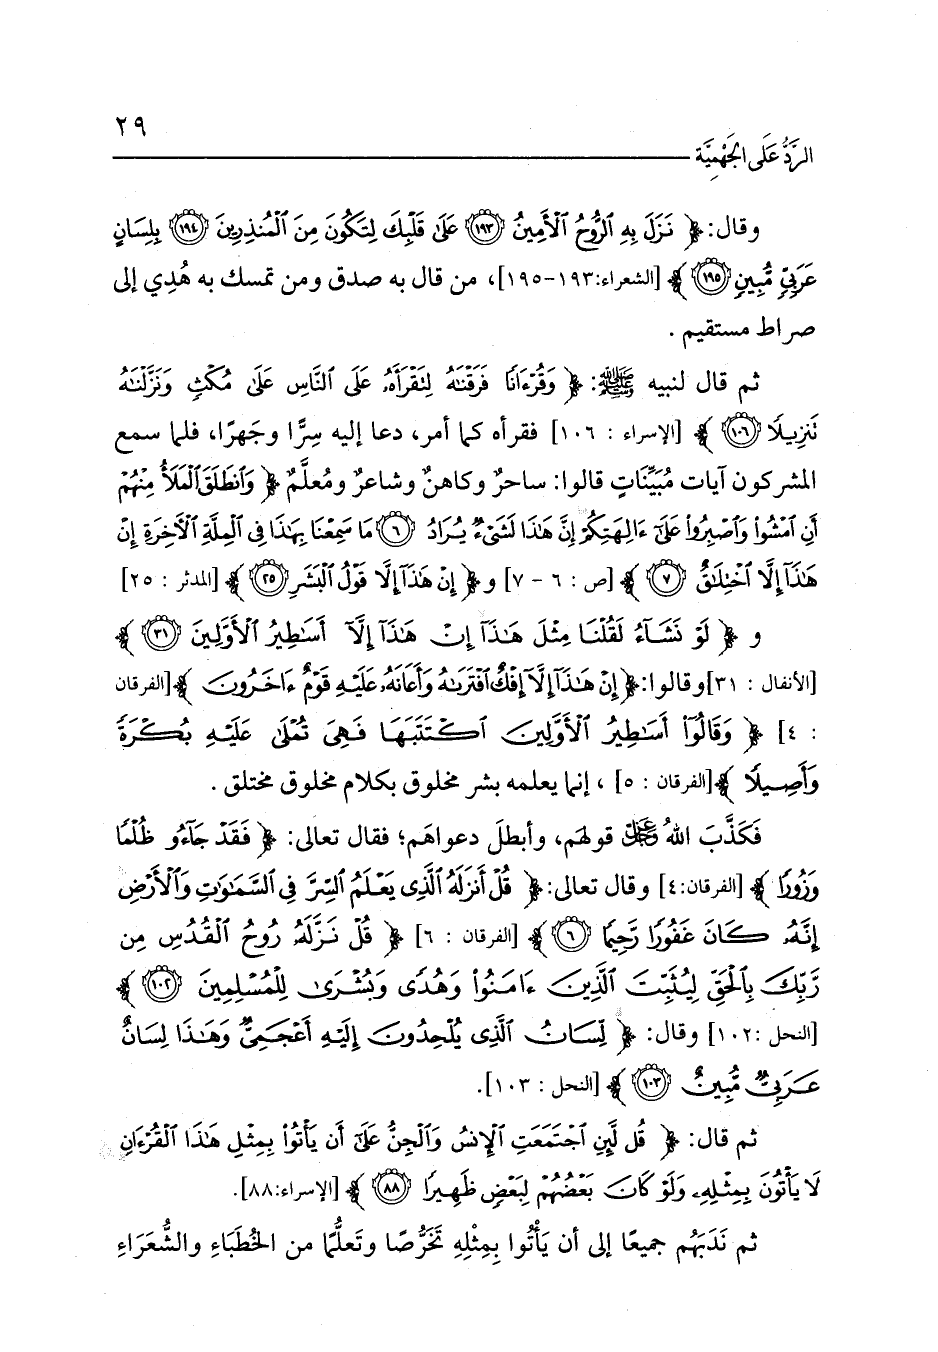 ٢٩
الرَّدُّ عَلَى الجَهْمِيَّة
وقال: ﴿ نَزَلَ بِهِ ٱلرُّوحُ ٱلْأَمِينُ ﴿١٩٣﴾ عَلَىٰ قَلْبِكَ لِتَكُونَ مِنَ ٱلْمُنذِرِينَ ﴿١٩٤﴾ بِلِسَانٍ
عَرَبِيٍّ مُّبِينٍ ﴿١٩٥﴾ ﴾ [الشعراء:١٩٣-١٩٥]، من قال به صدق ومن تمسك به هُدِي إلى
صراط مستقيم .
ثم قال لنبيه ﷺ: ﴿ وَقُرْءَانًا فَرَقْنَٰهُ لِتَقْرَأَهُۥ عَلَى ٱلنَّاسِ عَلَىٰ مُكْثٍ وَنَزَّلْنَٰهُ
تَنزِيلًا ﴿١٠٦﴾ ﴾ [الإسراء : ١٠٦] فقرأه كما أمر، دعا إليه سِرًّا وجَهرًا، فلما سمع
المشركون آيات مُبَيِّنَاتٍ قالوا: ساحرٌ وكاهنٌ وشاعرٌ ومُعلَّمٌ ﴿ وَٱنطَلَقَ ٱلْمَلَأُ مِنْهُمْ
أَنِ ٱمْشُوا۟ وَٱصْبِرُوا۟ عَلَىٰٓ ءَالِهَتِكُمْ إِنَّ هَٰذَا لَشَىْءٌ يُرَادُ ﴿٦﴾ مَا سَمِعْنَا بِهَٰذَا فِى ٱلْمِلَّةِ ٱلْآخِرَةِ إِنْ
هَٰذَآ إِلَّا ٱخْتِلَٰقٌ ﴿٧﴾ ﴾ [ص : ٦ - ٧] و﴿ إِنْ هَٰذَآ إِلَّا قَوْلُ ٱلْبَشَرِ ﴿٢٥﴾ ﴾ [المدثر : ٢٥]
و ﴿ لَوْ نَشَآءُ لَقُلْنَا مِثْلَ هَٰذَآ إِنْ هَٰذَآ إِلَّآ أَسَٰطِيرُ ٱلْأَوَّلِينَ ﴿٣١﴾ ﴾
[الأنفال : ٣١] وقالوا: ﴿ إِنْ هَٰذَآ إِلَّآ إِفْكٌ ٱفْتَرَىٰهُ وَأَعَانَهُۥ عَلَيْهِ قَوْمٌ ءَاخَرُونَ ﴾ [الفرقان
: ٤] ﴿ وَقَالُوٓا۟ أَسَٰطِيرُ ٱلْأَوَّلِينَ ٱكْتَتَبَهَا فَهِىَ تُمْلَىٰ عَلَيْهِ بُكْرَةً
وَأَصِيلًا ﴾ [الفرقان : ٥] ، إنما يعلمه بشر مخلوق بكلام مخلوق مختلق .
فَكَذَّبَ اللهُ ﷿ قولهَم، وأبطلَ دعواهَم؛ فقال تعالى: ﴿ فَقَدْ جَآءُو ظُلْمًا
وَزُورًا ﴾ [الفرقان:٤] وقال تعالى: ﴿ قُلْ أَنزَلَهُ ٱلَّذِى يَعْلَمُ ٱلسِّرَّ فِى ٱلسَّمَٰوَٰتِ وَٱلْأَرْضِ
إِنَّهُۥ كَانَ غَفُورًا رَّحِيمًا ﴿٦﴾ ﴾ [الفرقان : ٦] ﴿ قُلْ نَزَّلَهُۥ رُوحُ ٱلْقُدُسِ مِن
رَّبِّكَ بِٱلْحَقِّ لِيُثَبِّتَ ٱلَّذِينَ ءَامَنُوا۟ وَهُدًى وَبُشْرَىٰ لِلْمُسْلِمِينَ ﴿١٠٢﴾ ﴾
[النحل :١٠٢] وقال: ﴿ لِّسَانُ ٱلَّذِى يُلْحِدُونَ إِلَيْهِ أَعْجَمِىٌّ وَهَٰذَا لِسَانٌ
عَرَبِىٌّ مُّبِينٌ ﴿١٠٣﴾ ﴾ [النحل : ١٠٣].
ثم قال: ﴿ قُل لَّئِنِ ٱجْتَمَعَتِ ٱلْإِنسُ وَٱلْجِنُّ عَلَىٰٓ أَن يَأْتُوا۟ بِمِثْلِ هَٰذَا ٱلْقُرْءَانِ
لَا يَأْتُونَ بِمِثْلِهِۦ وَلَوْ كَانَ بَعْضُهُمْ لِبَعْضٍ ظَهِيرًا ﴿٨٨﴾ ﴾ [الإسراء:٨٨].
ثم نَدَبَهُم جميعًا إلى أن يَأْتُوا بِمِثْلِهِ تَخَرُّصًا وتَعلُّمًا من الخُطَبَاءِ والشُّعَرَاءِ